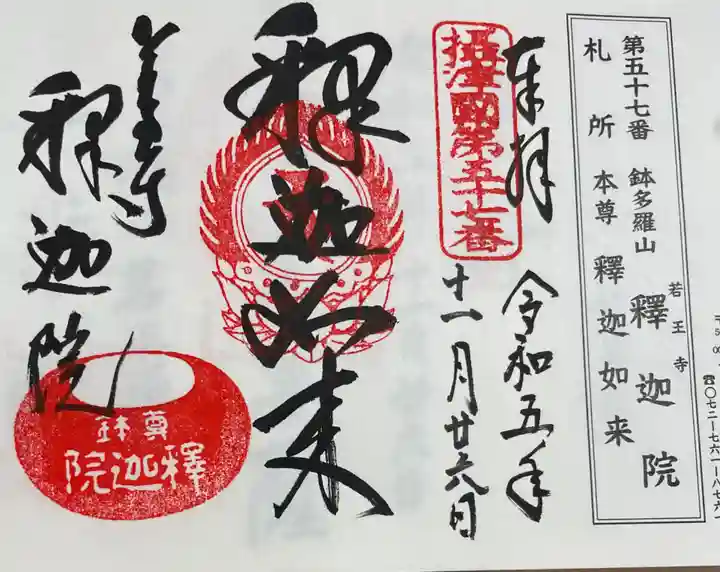 第五十七番 鉢多羅山 若王寺 釋迦院
札所本尊 釋迦如来
奉拝
令和五年
十一月廿六日
摂津國第五十七番
釋迦如来
若王寺
釋迦院
尊鉢
釋迦院